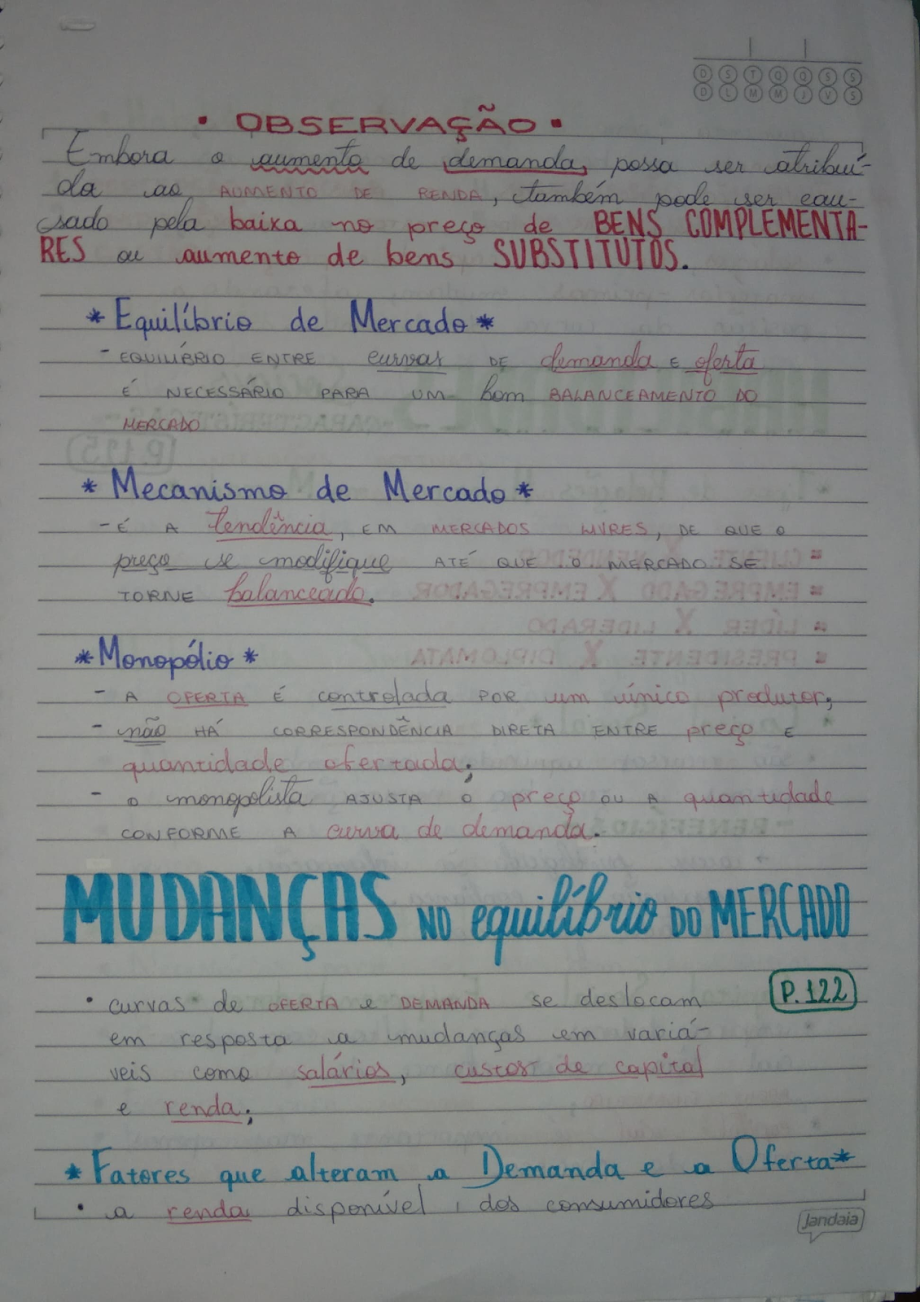 D S T Q Q S S
D L M M J V S
• OBSERVAÇÃO •
Embora o aumento de demanda, possa ser atribuí-
da ao AUMENTO DE RENDA, também pode ser cau-
sado pela baixa no preço de BENS COMPLEMENTA-
RES ou aumento de bens SUBSTITUTOS.
* Equilíbrio de Mercado *
- EQUILIÉBRIO ENTRE curvas DE demanda E oferta
É NECESSÁRIO PARA UM bom BALANCEAMENTO DO
MERCADO
* Mecanismo de Mercado *
- É A tendência, EM MERCADOS LIVRES, DE QUE O
preço se modifique ATÉ QUE O MERCADO SE
TORNE balanceado.
* Monopólio *
- A OFERTA É controlada POR um único produtor;
- não HÁ CORRESPONDÊNCIA DIRETA ENTRE preço E
quantidade ofertada;
- o monopolista AJUSTA O preço OU A quantidade
CONFORME A curva de demanda.
MUDANÇAS NO equilíbrio DO MERCADO
P. 122
• curvas de OFERTA e DEMANDA se deslocam
em resposta a mudanças em variá-
veis como salários, custos de capital
e renda;
* Fatores que alteram a Demanda e a Oferta *
• a renda disponível dos consumidores
Jandaia